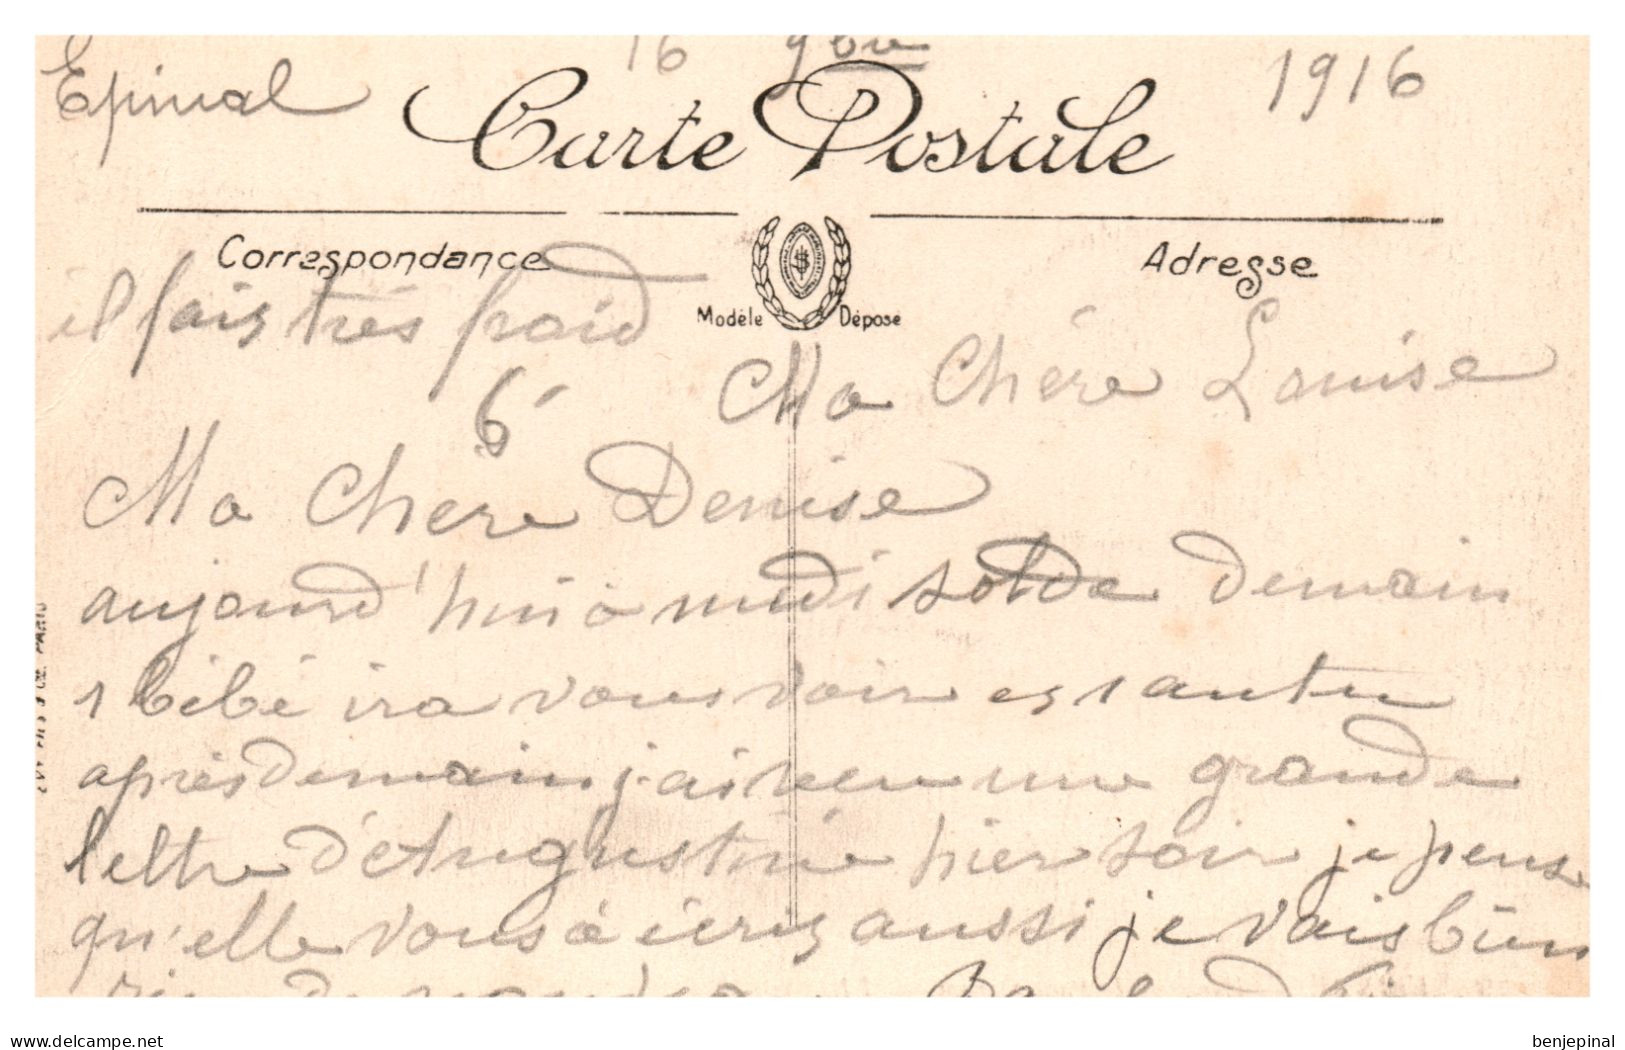 Epinal 16 9bre 1916
Carte Postale
Correspondance
Adresse
Modèle Déposé
il fais très froid
6
Ma Chère Louise
Ma Chère Denise
aujourd'hui à midi solde demain
1 bébé ira vous voir es 1 autre
après demain j'ai reçu une grande
lettre d'Augustine hier soir je pense
qu'elle vous à écris aussi je vais bien
delcampe.net
benjepinal